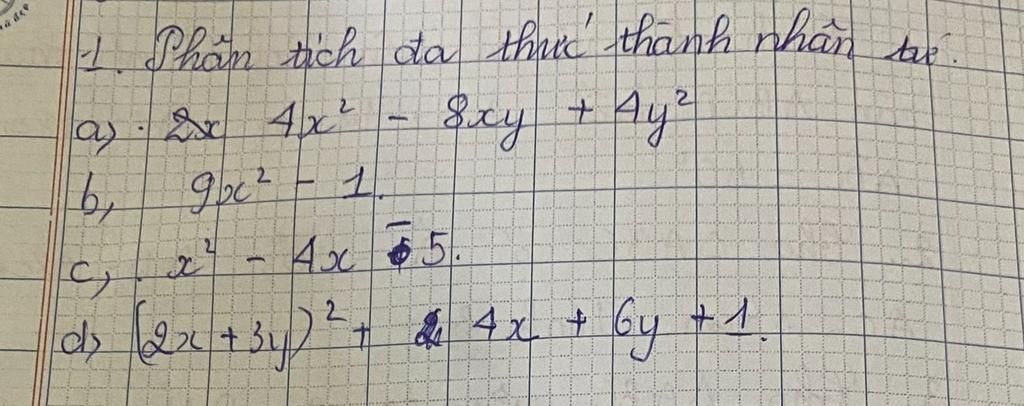 1. Phân tích đa thức thành nhân tử.
a) 4x² - 8xy + 4y²
b, 9x² - 1.
c, x² - 4x - 5.
d) (2x + 3y)² + 4x + 6y + 1.